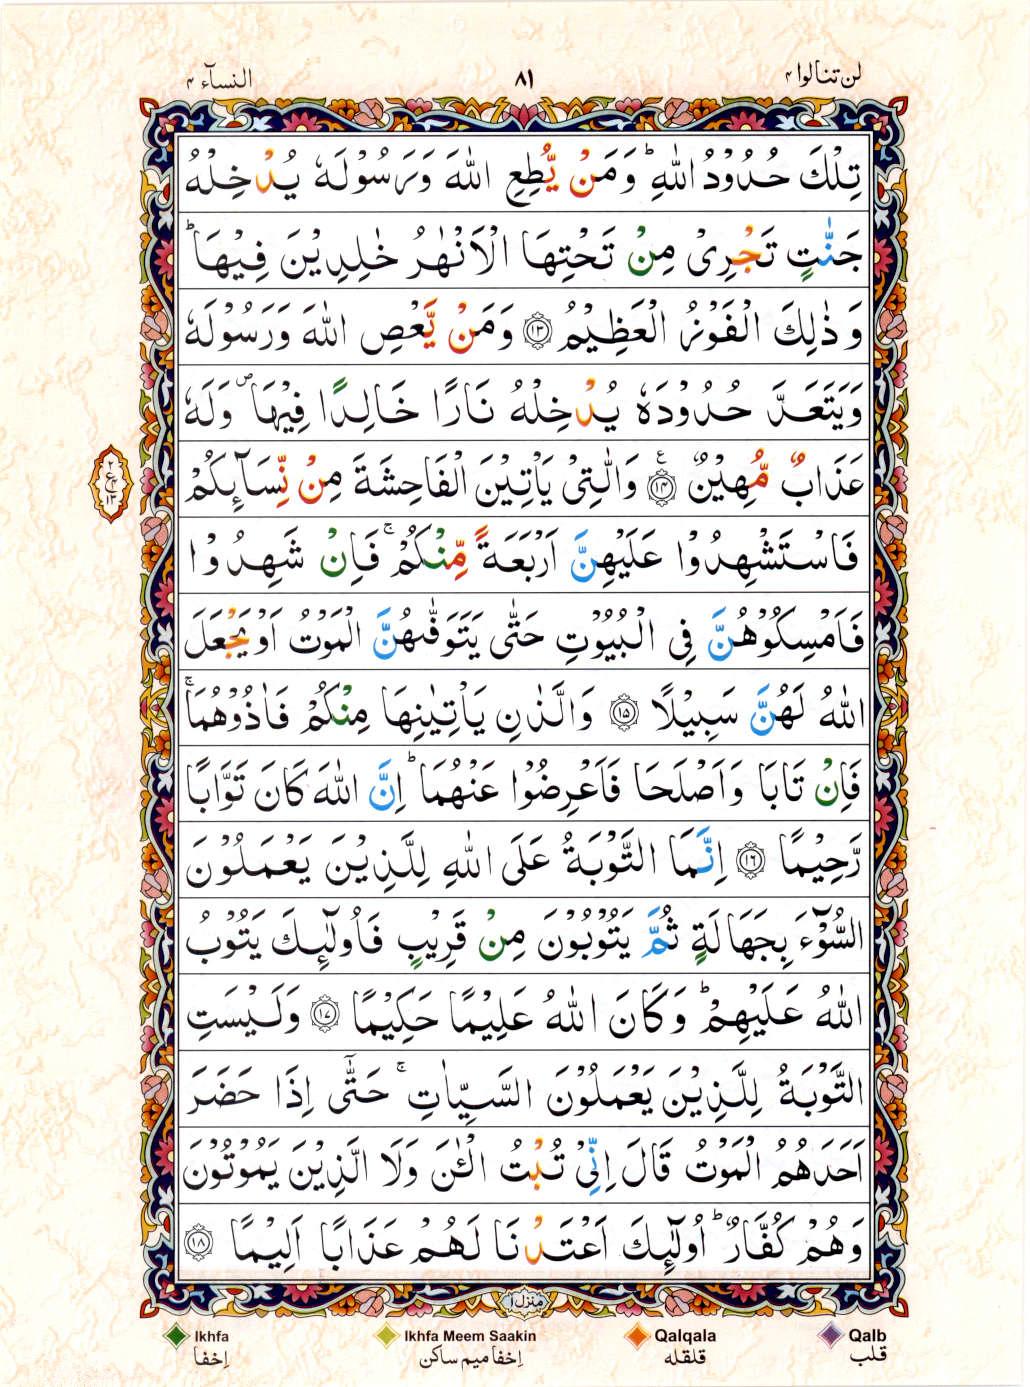 لن تنالوا ۴
۸۱
النسآء ۴
تِلْكَ حُدُوْدُ اللّٰهِ ؕ وَمَنْ يُّطِعِ اللّٰهَ وَرَسُوْلَهٗ يُدْخِلْهُ
جَنّٰتٍ تَجْرِىْ مِنْ تَحْتِهَا الْاَنْهٰرُ خٰلِدِيْنَ فِيْهَا ؕ
وَذٰلِكَ الْفَوْزُ الْعَظِيْمُ ﴿۱۳﴾ وَمَنْ يَّعْصِ اللّٰهَ وَرَسُوْلَهٗ
وَيَتَعَدَّ حُدُوْدَهٗ يُدْخِلْهُ نَارًا خَالِدًا فِيْهَا ۪ وَلَهٗ
عَذَابٌ مُّهِيْنٌ ﴿۱۴﴾ وَالّٰتِىْ يَاْتِيْنَ الْفَاحِشَةَ مِنْ نِّسَآئِكُمْ
فَاسْتَشْهِدُوْا عَلَيْهِنَّ اَرْبَعَةً مِّنْكُمْ ۚ فَاِنْ شَهِدُوْا
فَاَمْسِكُوْهُنَّ فِى الْبُيُوْتِ حَتّٰى يَتَوَفّٰٮهُنَّ الْمَوْتُ اَوْ يَجْعَلَ
اللّٰهُ لَهُنَّ سَبِيْلًا ﴿۱۵﴾ وَالَّذٰنِ يَاْتِيٰنِهَا مِنْكُمْ فَاٰذُوْهُمَا ۚ
فَاِنْ تَابَا وَاَصْلَحَا فَاَعْرِضُوْا عَنْهُمَا ؕ اِنَّ اللّٰهَ كَانَ تَوَّابًا
رَّحِيْمًا ﴿۱۶﴾ اِنَّمَا التَّوْبَةُ عَلَى اللّٰهِ لِلَّذِيْنَ يَعْمَلُوْنَ
السُّوْٓءَ بِجَهَالَةٍ ثُمَّ يَتُوْبُوْنَ مِنْ قَرِيْبٍ فَاُولٰٓئِكَ يَتُوْبُ
اللّٰهُ عَلَيْهِمْ ؕ وَكَانَ اللّٰهُ عَلِيْمًا حَكِيْمًا ﴿۱۷﴾ وَلَيْسَتِ
التَّوْبَةُ لِلَّذِيْنَ يَعْمَلُوْنَ السَّيِّاٰتِ ۚ حَتّٰٓى اِذَا حَضَرَ
اَحَدَهُمُ الْمَوْتُ قَالَ اِنِّىْ تُبْتُ الْئٰنَ وَلَا الَّذِيْنَ يَمُوْتُوْنَ
وَهُمْ كُفَّارٌ ؕ اُولٰٓئِكَ اَعْتَدْنَا لَهُمْ عَذَابًا اَلِيْمًا ﴿۱۸﴾
منزل ۱
Ikhfa
Ikhfa Meem Saakin
Qalqala
Qalb
اِخفا
اِخفا میم ساکن
قلقله
قلب